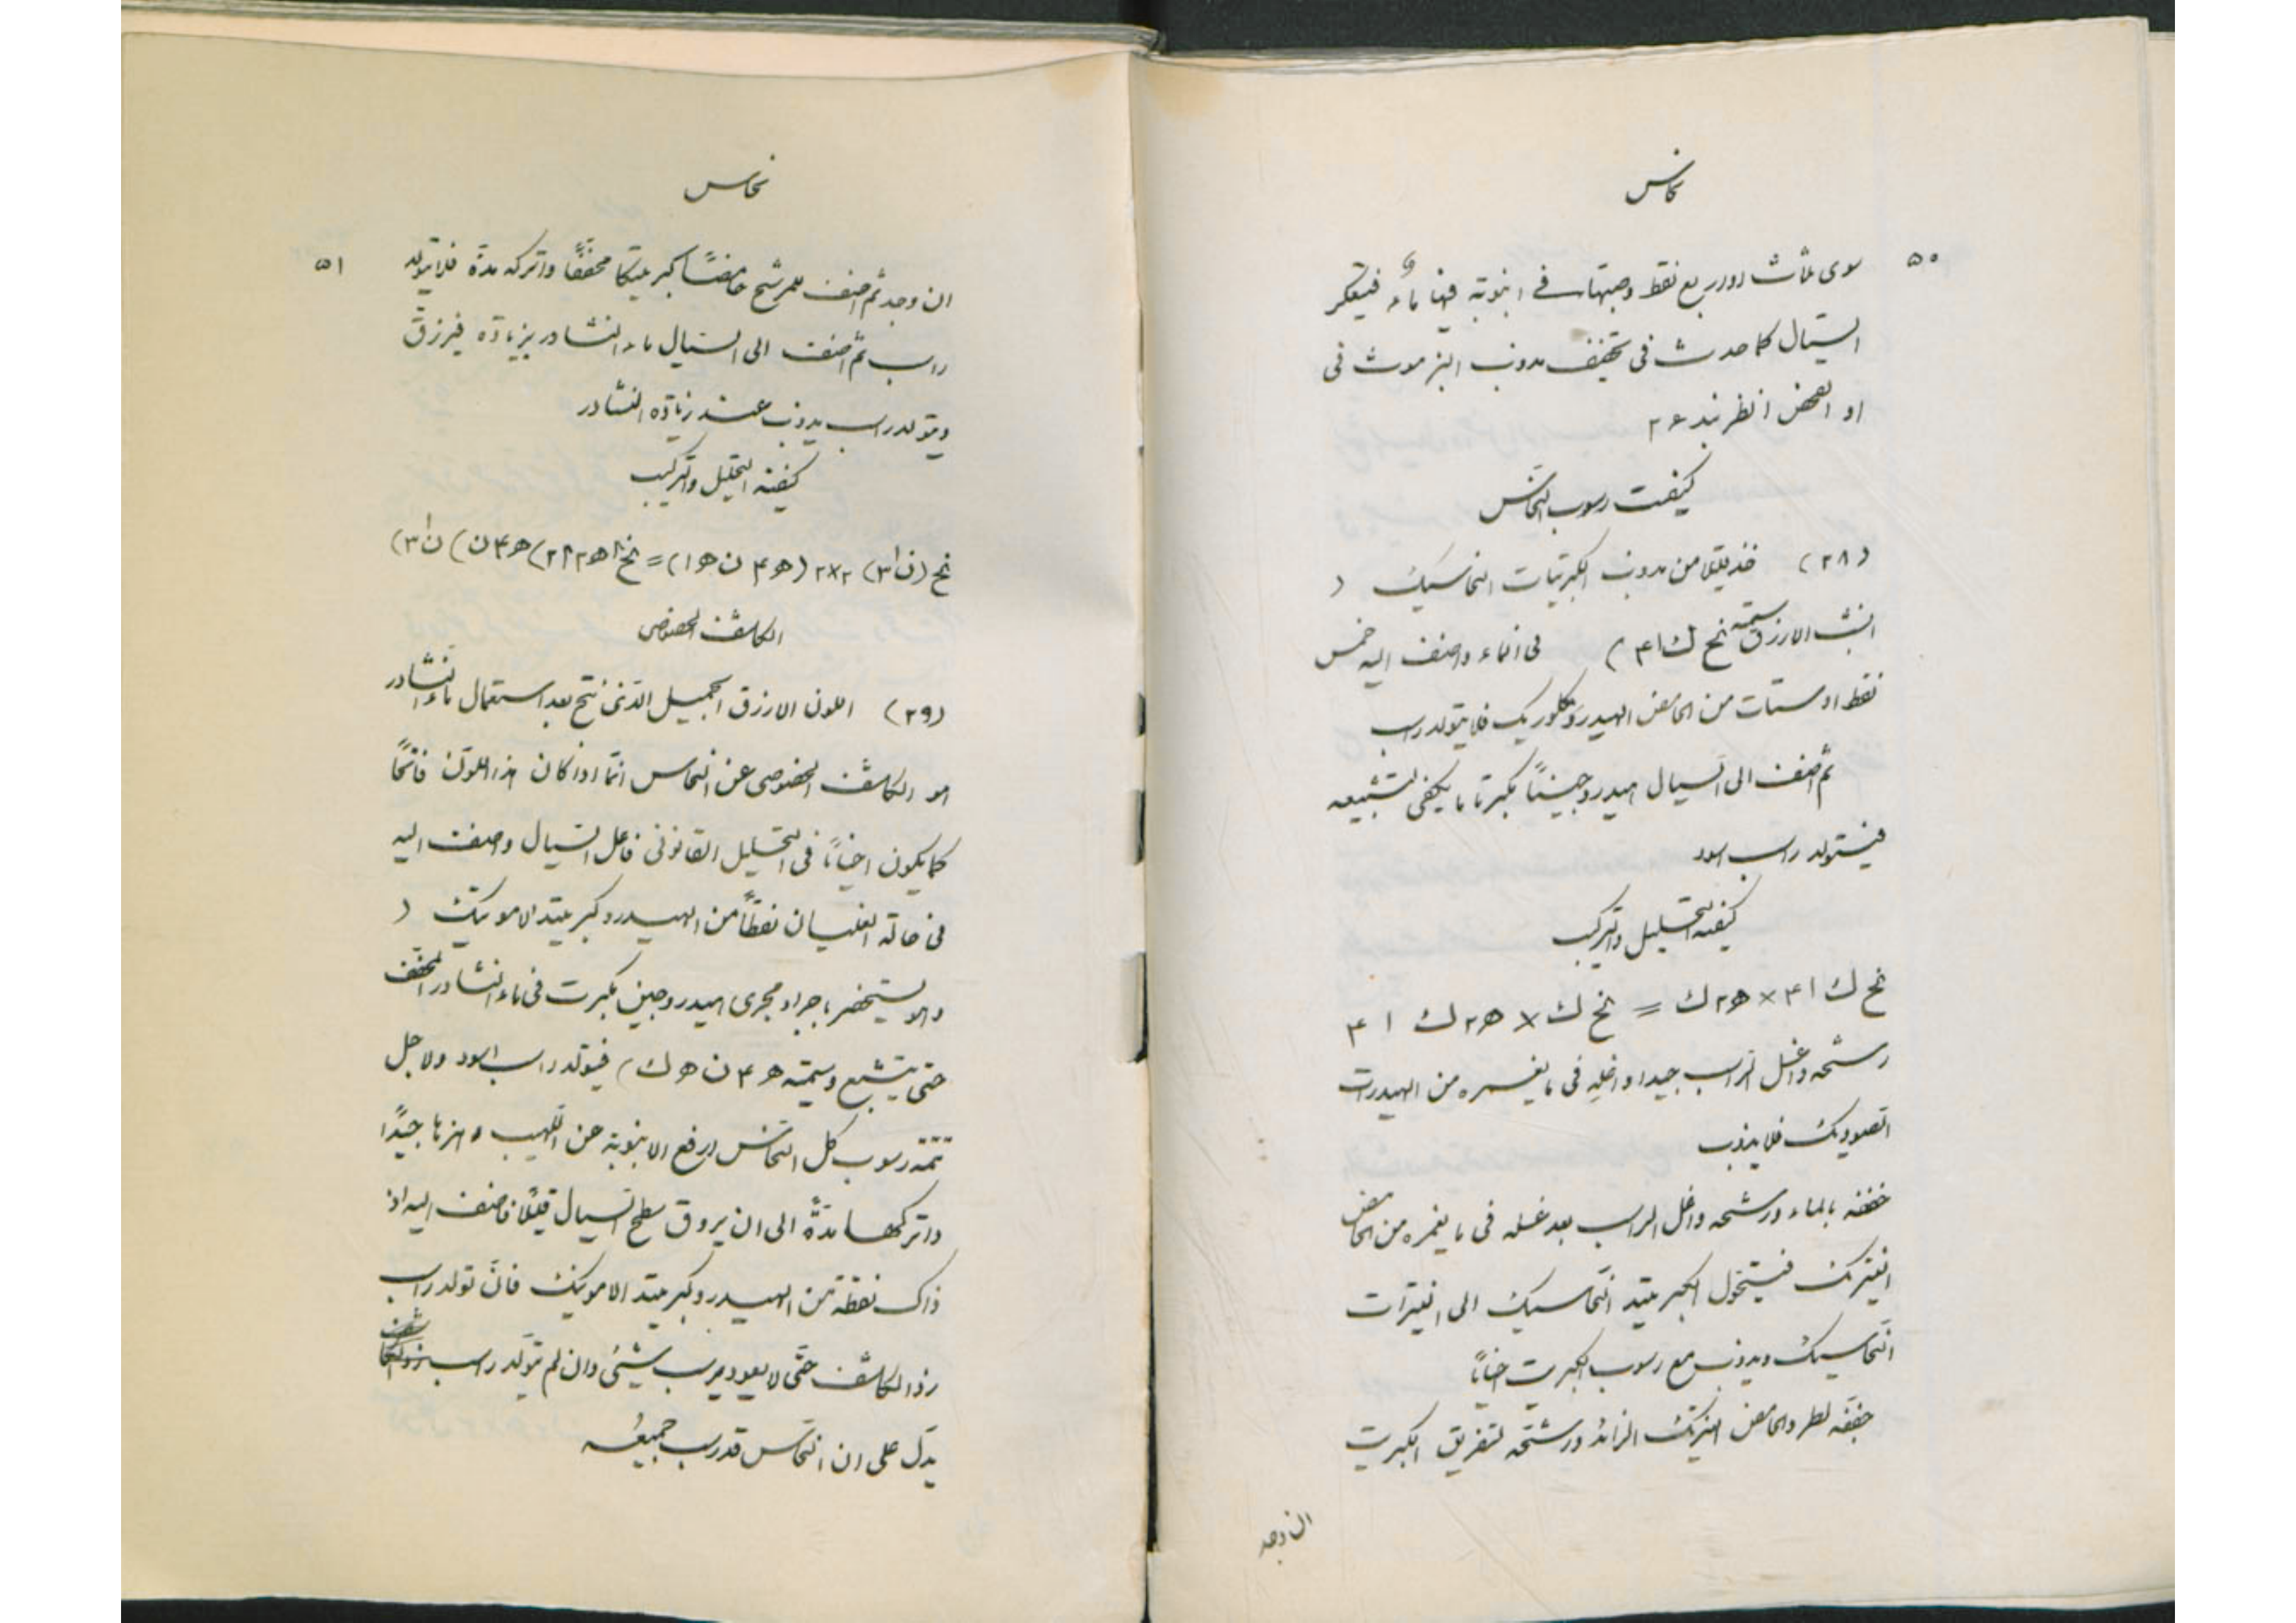 نحاس
٥٠
سوى ثلاث او اربع نقط وصبها في انبوبة فيها ماء فيتعكر
السيال كما حدث فى تخفيف مذوب البزموث فى
او الحمض انظر بند ٢٦
كيفيت رسوب النحاس
(٢٨) خذ قليلا من مذوب الكبريتات النحاسيك (
الشب الازرق سمته نح ك ا ۴) فى الماء واضف اليه خمس
نقط او ستات من الحامض الهيدروكلوريك فلا يتولد راسب
ثم اضف الى السيال هيدروجيناً مكبرتا ما يكفى لتشبيعه
فيتولد راسب اسود
كيفية التحليل والتركيب
نح ك ا ۴ × ه٢ ك = نح ك × ه٢ ك ا ۴
رشحه واغسل الراسب جيدا واغله فى ما يغمره من الهيدرات
الصوديك فلا يذوب
خففه بالماء ورشحه واغل الراسب بعد غسله فى ما يغمره من الحامض
النيتريك فيتحول الكبريتيد النحاسيك الى النيترات
النحاسيك ويذوب مع رسوب الكبريت احياناً
جففه لطرد الحامض النيتريك الزائد ورشحه لتفريق الكبريت
ان وجد
نحاس
٥١
ان وجد ثم اضف للمرشح حامضاً كبريتيكا مخففاً واتركه مدة فلا يتولد
راسب ثم اضف الى السيال ماء النشادر بزيادة فيزرق
ويتولد راسب يذوب عند زيادة النشادر
كيفية التحليل والتركيب
نح (ن ا ٣) ٢×٢ (ه ۴ ن ه ا) = نح ا ه ٢ ا ٢) (ه ۴ ن) ن ا ٣)
الكاشف الخصوصى
(٢٩) اللون الازرق الجميل الذى نتج بعد استعمال ماء النشادر
هو الكاشف الخصوصى عن النحاس انما اذا كان هذا اللون فاتحاً
كما يكون احياناً فى التحليل القانونى فاغل السيال وضف اليه
فى حالة الغليان نقطاً من الهيدروكبريتيد الامونيك (
والا يستحضر باجراء مجرى هيدروجين مكبرت فى ماء النشادر المخفف
حتى يتشبع وسمته ه ۴ ن ه ك) فيتولد راسب اسود ولاجل
تتمة رسوب كل النحاس ارفع الانبوبة عن اللهيب وهزها جيداً
واتركها مدة الى ان يروق سطح السيال قليلاً فاضف اليه اذ
ذاك نقطة من الهيدروكبريتيد الامونيك فان تولد راسب
زد الكاشف حتى لا يعود يرسب شيئى وان لم يتولد راسب زد الكاشف
يدل على ان النحاس قد رسب جميعه